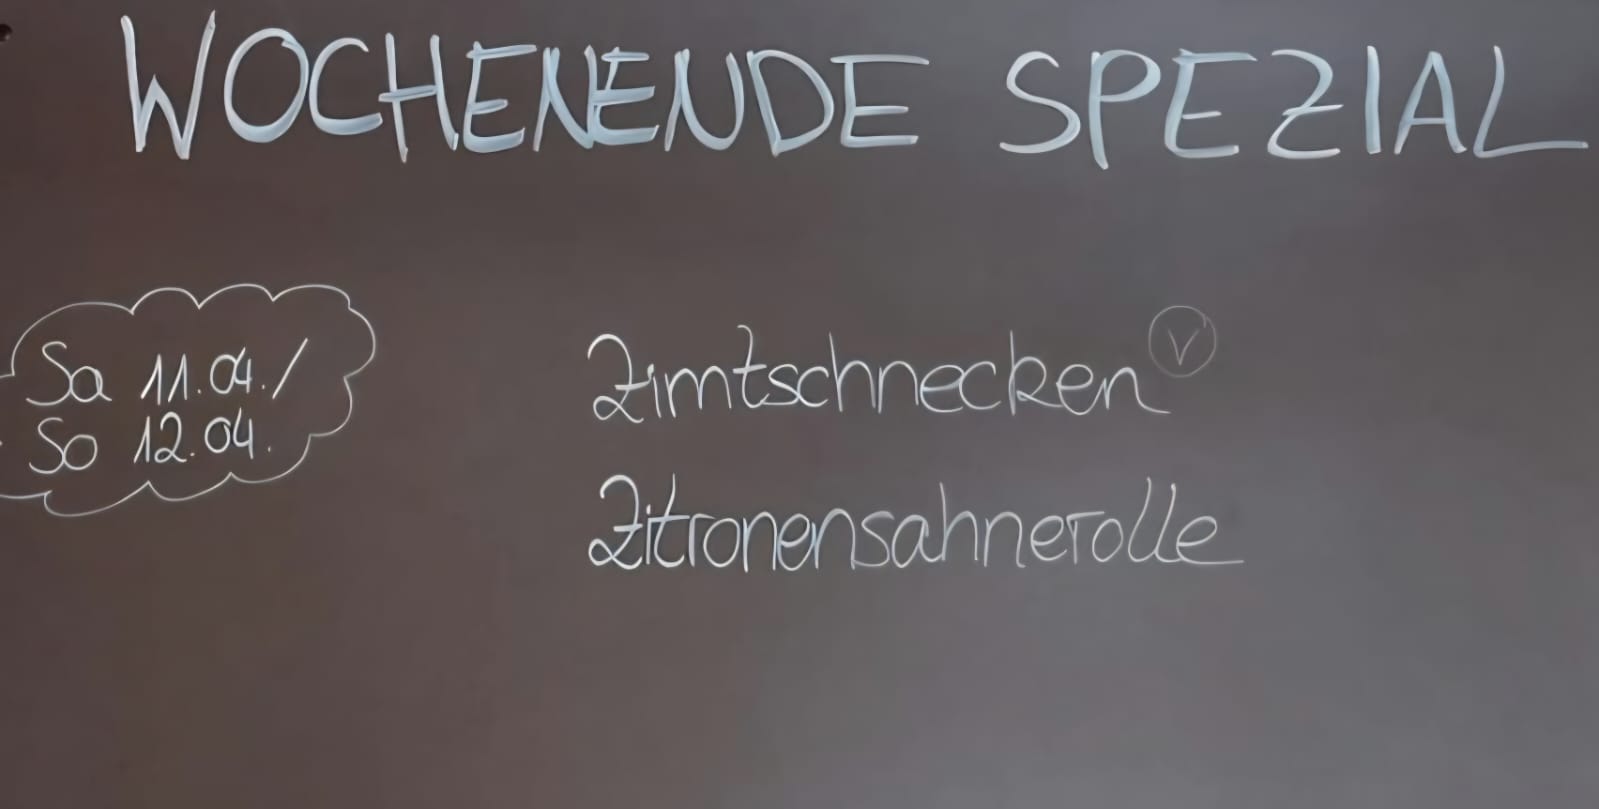 WOCHENENDE SPEZIAL
Sa 11.04./
So 12.04.
Zimtschnecken V
Zitronensahnerolle